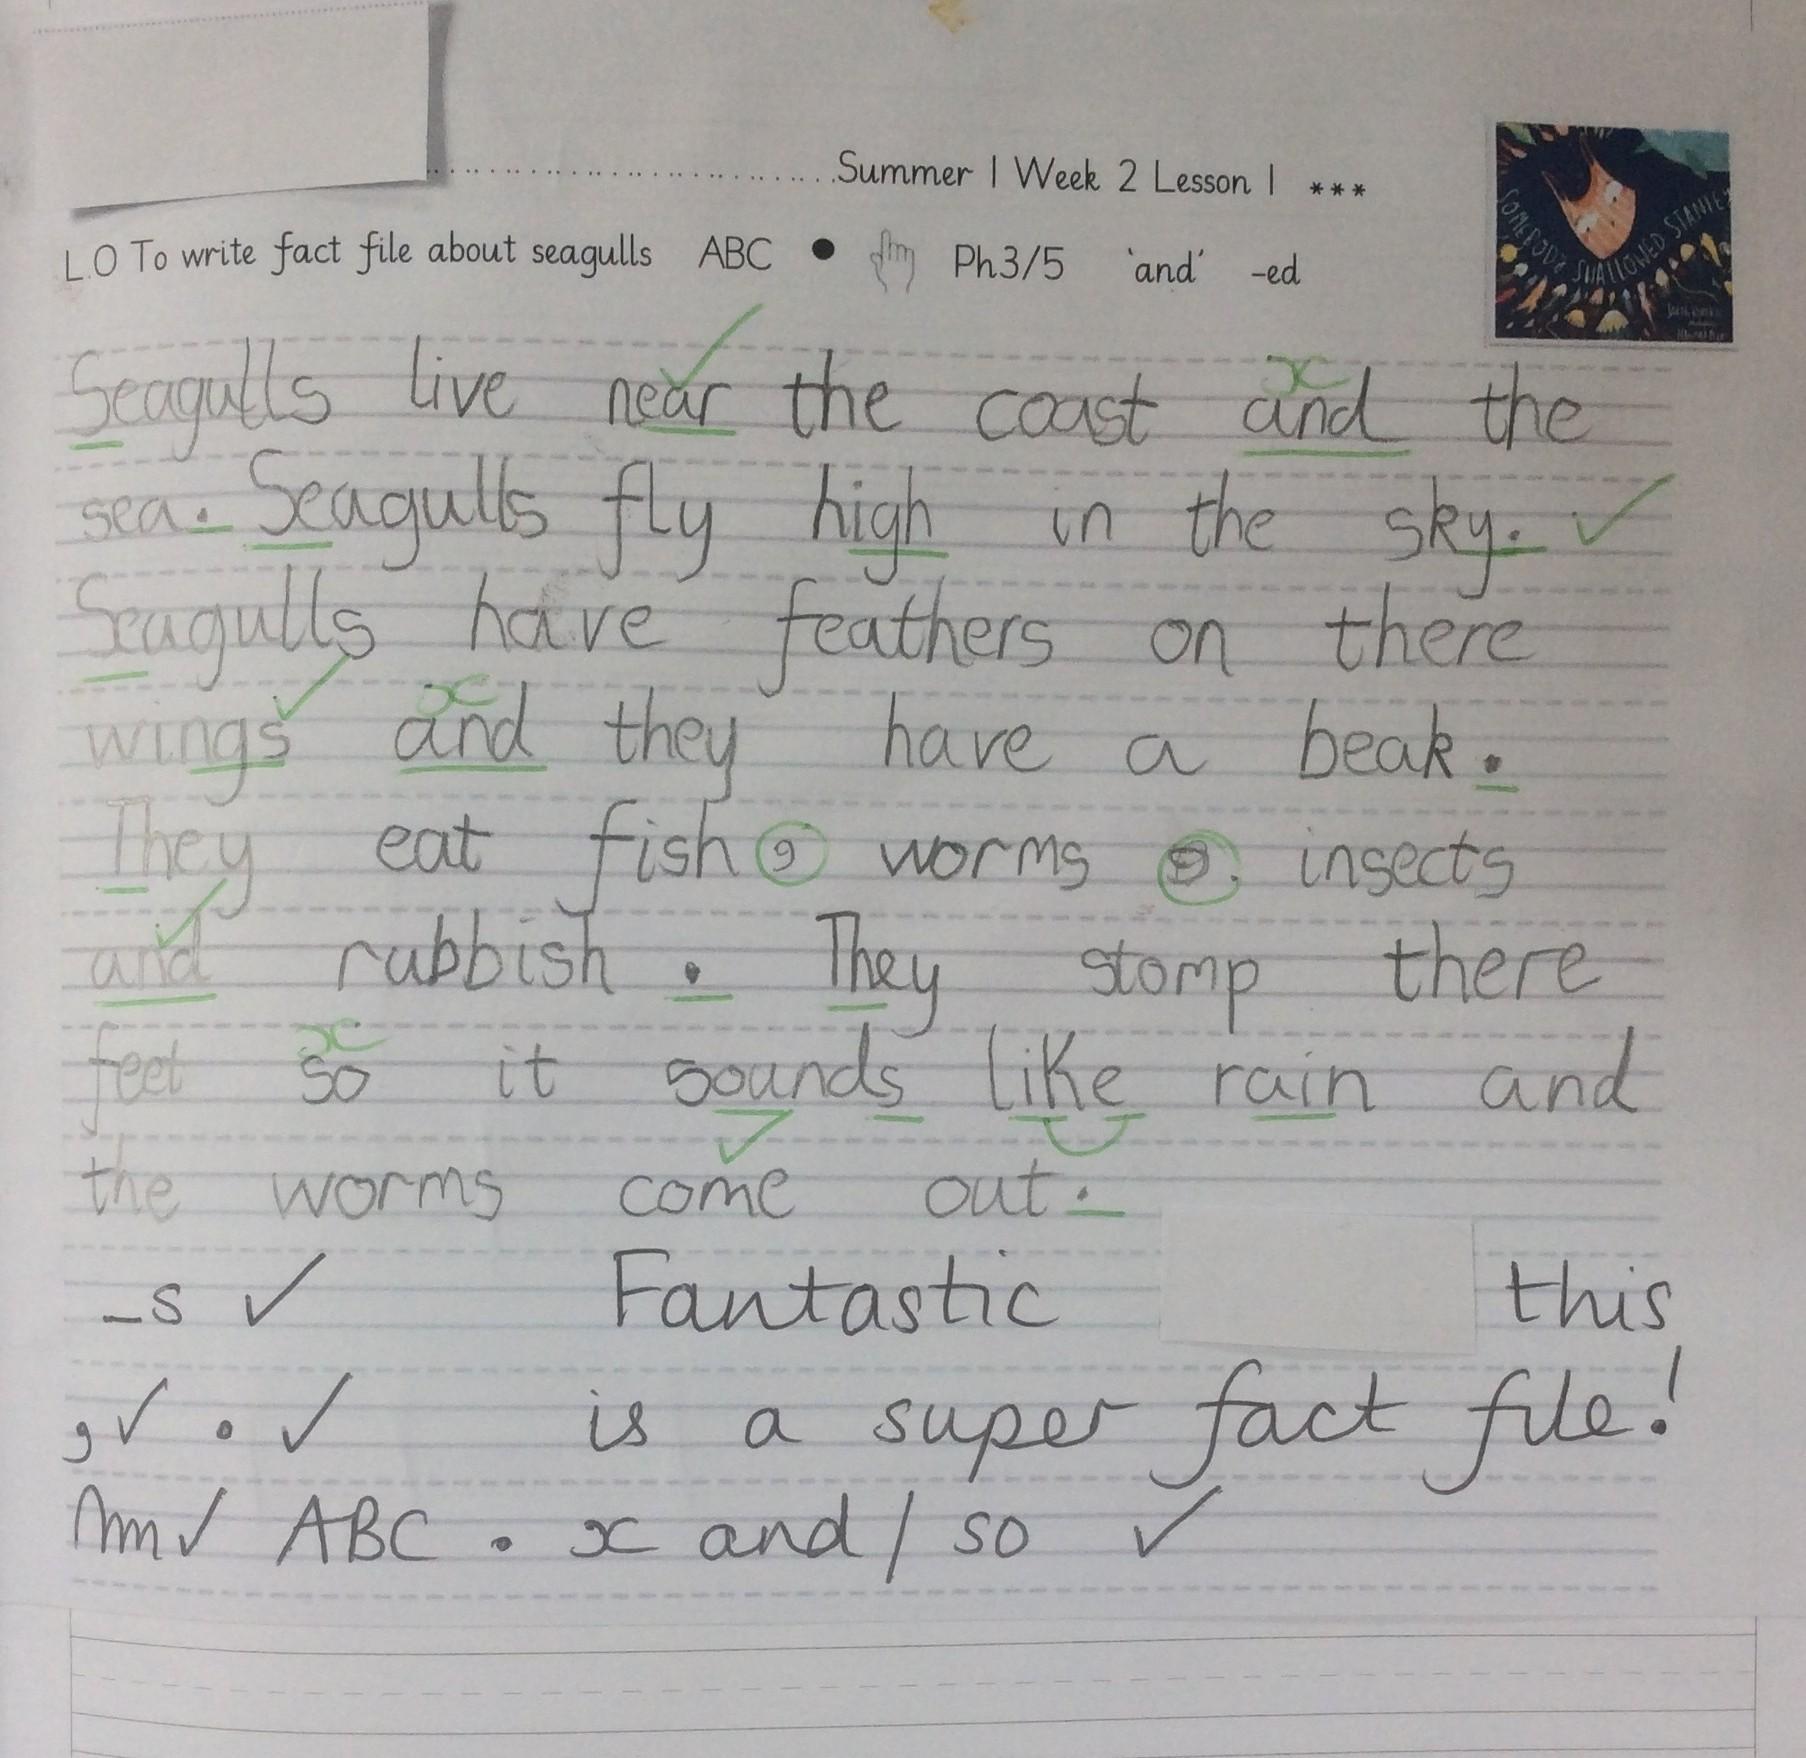 Summer 1 Week 2 Lesson 1 ***
L.O To write fact file about seagulls ABC ● Ph3/5 'and' -ed
SOMEBODY SWALLOWED STANLEY
Seagulls live near the coast and the
sea. Seagulls fly high in the sky.
Seagulls have feathers on there
wings and they have a beak.
They eat fish, worms , insects
and rubbish. They stomp there
feet so it sounds like rain and
the worms come out.
-s ✓ Fantastic this
,✓ . ✓ is a super fact file!
✓ ABC . x and/so ✓